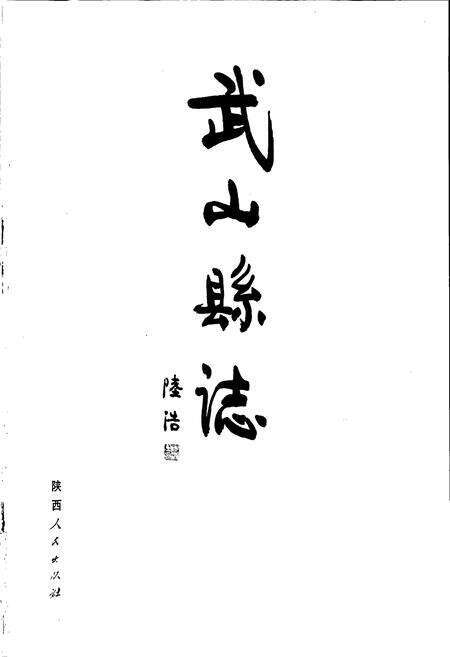 武山縣誌
陸浩
陕西人民出版社